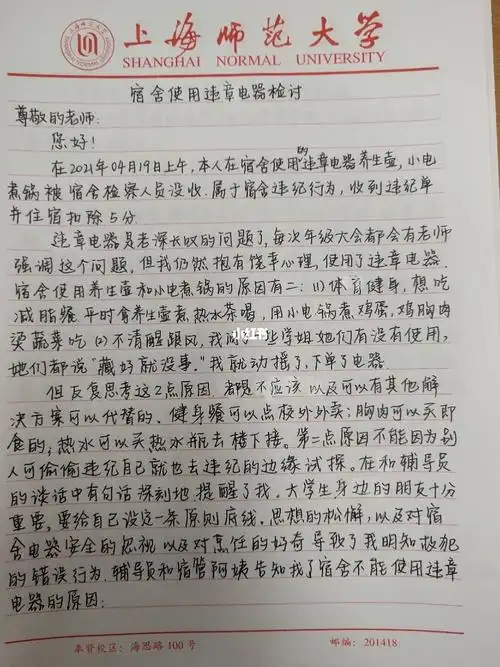 上海师范大学
SHANGHAI NORMAL UNIVERSITY
宿舍使用违章电器检讨
尊敬的老师:
您好!
在2021年04月19日上午,本人在宿舍使用的违章电器养生壶,小电
煮锅被宿舍检察人员没收.属于宿舍违纪行为,收到违纪单
并住宿扣除5分.
违章电器是老深长叹的问题了,每次年级大会都会有老师
强调这个问题,但我仍然抱有饶幸心理,使用了违章电器.
宿舍使用养生壶和小电煮锅的原因有二:(1)体育健身,想吃
减脂餐.平时会养生壶煮热水茶喝,用小电锅煮鸡蛋,鸡胸肉
烫蔬菜吃(2)不清醒跟风,我问一些学姐她们有没有使用,
她们都说"藏好就没事."我就动摇了,下单了电器.
小红书
但反复思考这2点原因.都是不应该以及可以有其他解
决方案可以代替的.健身餐可以点校外外卖;胸肉可以买即
食的,热水可以买热水瓶去楼下接。第二点原因不能因为别
人可偷偷违纪自己就也去违纪的边缘试探。在和辅导员
的谈话中有句话深刻地提醒了我.大学生身边的朋友十分
重要,要给自己设定一条原则底线.思想的松懈,以及对宿
舍电器安全的忽视以及对烹饪的好奇导致了我明知故犯
的错误行为.辅导员和宿管阿姨告知我了宿舍不能使用违章
电器的原因:
奉贤校区:海思路100号
邮编:201418